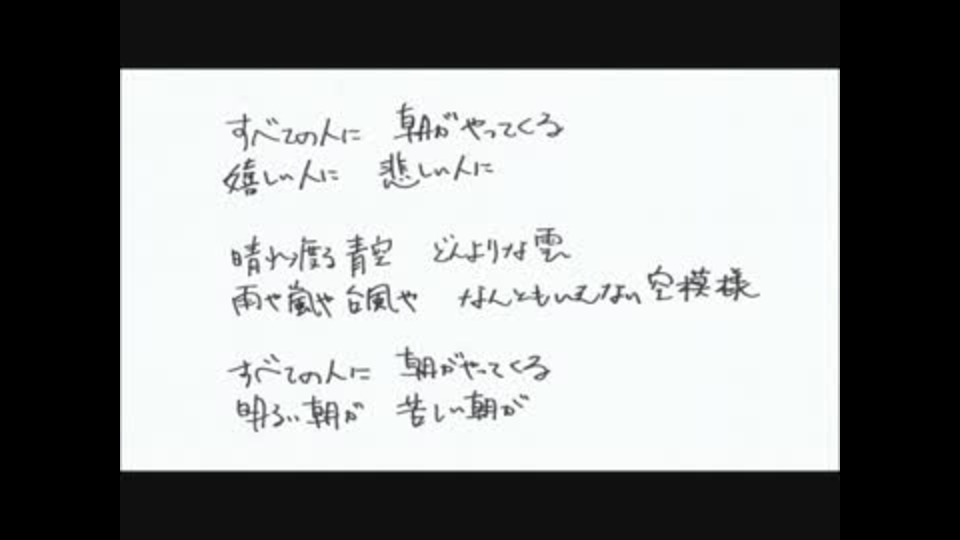 すべての人に　朝がやってくる
嬉しい人に　悲しい人に
晴れ渡る青空　どんよりな雲
雨や嵐や台風や　なんともいえない空模様
すべての人に　朝がやってくる
明るい朝が　苦しい朝が